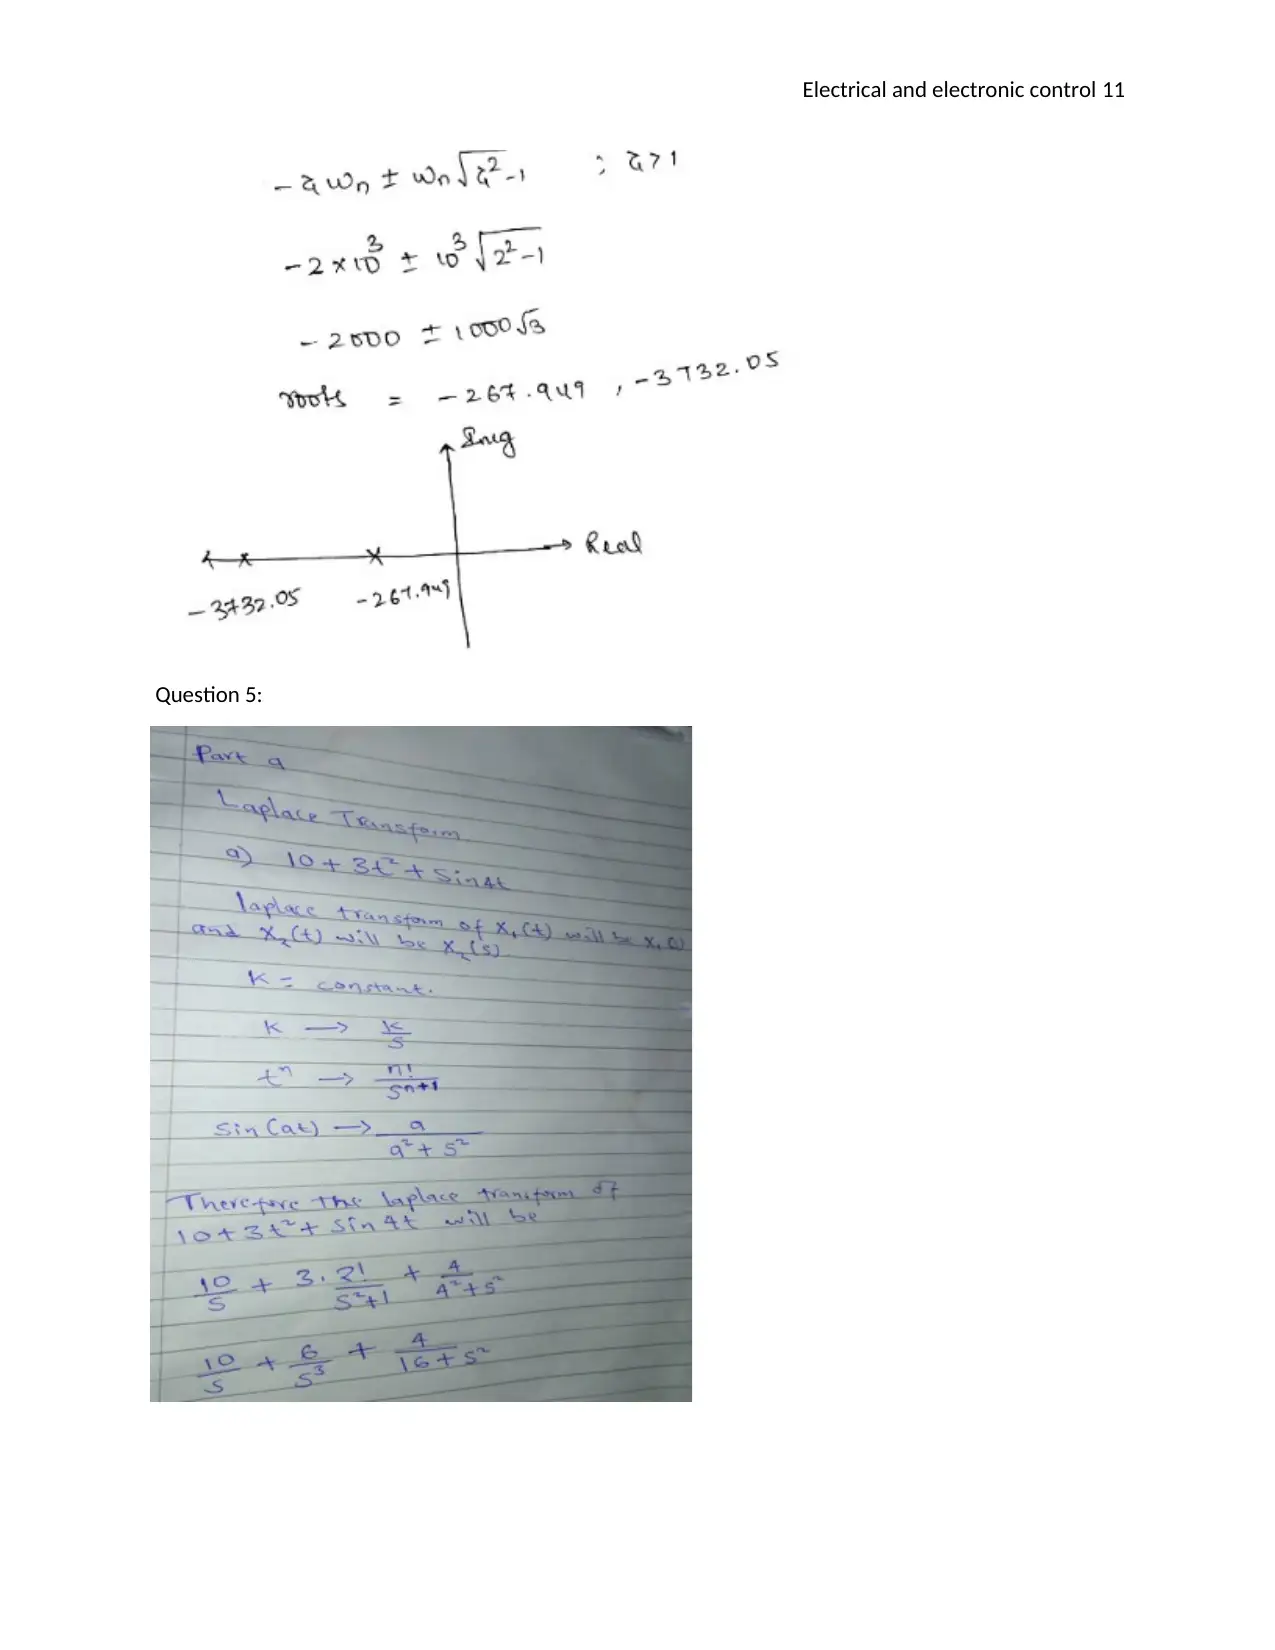 Electrical and electronic control 11
- ζ ωn ± ωn √ζ² -1 ; ζ > 1
- 2 × 10³ ± 10³ √2² -1
- 2000 ± 1000√3
roots = - 267.949 , - 3732.05
Img
Real
- 3732.05 - 267.949
Question 5:
Part a
Laplace Transform
a) 10 + 3t² + Sin4t
laplace transform of X₁(t) will be X₁(s)
and X₂(t) will be X₂(s)
K = constant.
K → K/S
tⁿ → n!/Sⁿ⁺¹
Sin (at) → a/(a² + S²)
Therefore the laplace transform of
10 + 3t² + Sin 4t will be
10/S + 3 . 2!/S²⁺¹ + 4/(4² + S²)
10/S + 6/S³ + 4/(16 + S²)